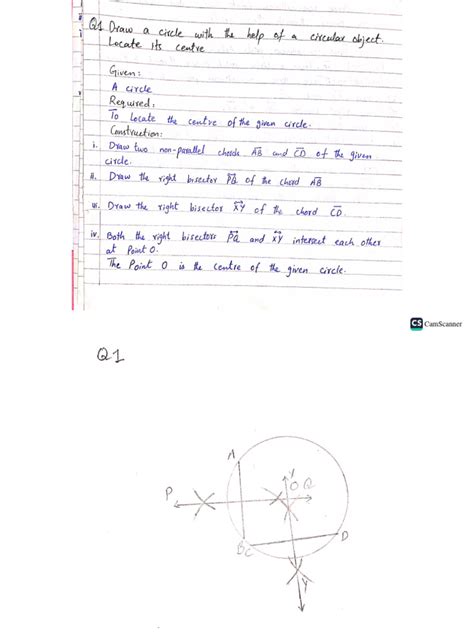 Q1 Draw a circle with the help of a circular object.
Locate its centre
Given:
A circle
Required:
To Locate the centre of the given circle.
Construction:
i. Draw two non-parallel chords AB and CD of the given
circle.
ii. Draw the right bisector PQ of the chord AB
iii. Draw the right bisector XY of the chord CD.
iv. Both the right bisectors PQ and XY intersect each other
at Point O.
The Point O is the centre of the given circle.
CS CamScanner
Q1
A
P
O Q
B C
D
Y